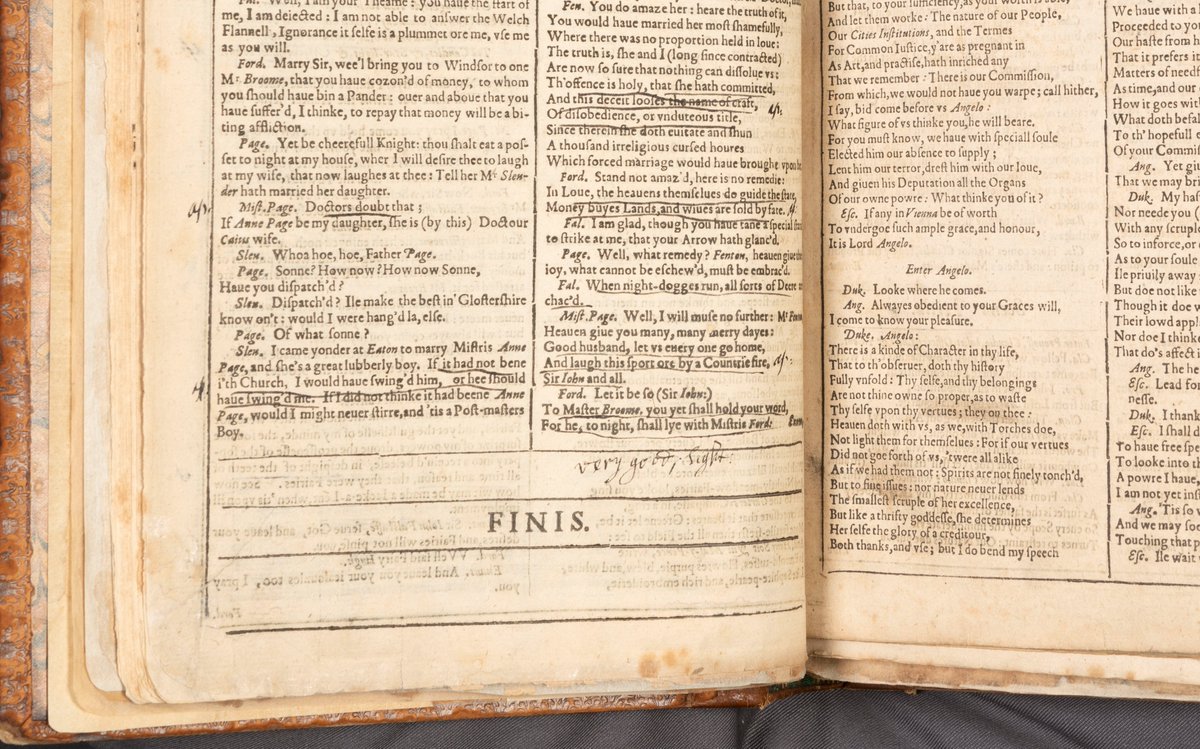 Fal. Well, I am your Theame: you haue the start of
me, I am deiected: I am not able to answer the Welch
Flannell, Ignorance it selfe is a plummet ore me, vse me
as you will.
Ford. Marry Sir, wee'l bring you to Windsor to one
Mr Broome, that you haue cozon'd of money, to whom
you should haue bin a Pander: ouer and aboue that you
haue suffer'd, I thinke, to repay that money will be a bi-
ting affliction.
Page. Yet be cheerefull Knight: thou shalt eat a pos-
set to night at my house, wher I will desire thee to laugh
at my wife, that now laughes at thee: Tell her Mr Slen-
der hath married her daughter.
Mist.Page. Doctors doubt that;
If Anne Page be my daughter, she is (by this) Doctour
Caius wife.
Slen. Whoa hoe, hoe, Father Page.
Page. Sonne? How now? How now Sonne,
Haue you dispatch'd?
Slen. Dispatch'd? Ile make the best in Glostershire
know on't: would I were hang'd la, else.
Page. Of what sonne?
Slen. I came yonder at Eaton to marry Mistris Anne
Page, and she's a great lubberly boy. If it had not bene
i'th Church, I would haue swing'd him, or hee should
haue swing'd me. If I did not thinke it had beene Anne
Page, would I might neuer stirre, and 'tis a Post-masters
Boy.
Fen. You do amaze her: heare the truth of it,
You would haue married her most shamefully,
Where there was no proportion held in loue:
The truth is, she and I (long since contracted)
Are now so sure that nothing can dissolue vs:
Th'offence is holy, that she hath committed,
And this deceit looses the name of craft,
Of disobedience, or vnduteous title,
Since therein she doth euitate and shun
A thousand irreligious cursed houres
Which forced marriage would haue brought vpon
Ford. Stand not amaz'd, here is no remedie:
In Loue, the heauens themselues do guide the state,
Money buyes Lands, and wiues are sold by fate.
Fal. I am glad, though you haue tane a special
to strike at me, that your Arrow hath glanc'd.
Page. Well, what remedy? Fenton, heauen giue
ioy, what cannot be eschew'd, must be embrac'd.
Fal. When night-dogges run, all sorts of Deere
chac'd.
Mist.Page. Well, I will muse no further: Mr
Heauen giue you many, many merry dayes:
Good husband, let vs euery one go home,
And laugh this sport ore by a Countrie fire,
Sir Iohn and all.
Ford. Let it be so (Sir Iohn:)
To Master Broome, you yet shall hold your word,
For he, to night, shall lye with Mistris Ford:
very good; light
FINIS.
But that, to your sufficiency, as your worth is able,
And let them worke: The nature of our People,
Our Cities Institutions, and the Termes
For Common Iustice, y'are as pregnant in
As Art, and practise, hath inriched any
That we remember: There is our Commission,
From which, we would not haue you warpe; call hither,
I say, bid come before vs Angelo:
What figure of vs thinke you, he will beare.
For you must know, we haue with speciall soule
Elected him our absence to supply;
Lent him our terror, drest him with our loue,
And giuen his Deputation all the Organs
Of our owne powre: What thinke you of it?
Esc. If any in Vienna be of worth
To vndergoe such ample grace, and honour,
It is Lord Angelo.
Enter Angelo.
Duk. Looke where he comes.
Ang. Alwayes obedient to your Graces will,
I come to know your pleasure.
Duke. Angelo:
There is a kinde of Character in thy life,
That to th'obseruer, doth thy history
Fully vnfold: Thy selfe, and thy belongings
Are not thine owne so proper, as to waste
Thy selfe vpon thy vertues; they on thee:
Heauen doth with vs, as we, with Torches doe,
Not light them for themselues: For if our vertues
Did not goe forth of vs, 'twere all alike
As if we had them not: Spirits are not finely touch'd,
But to fine issues: nor nature neuer lends
The smallest scruple of her excellence,
But like a thrifty goddesse, she determines
Her selfe the glory of a creditour,
Both thanks, and vse; but I do bend my speech
We haue with a
Proceeded to you
Our haste from h
That it prefers it
Matters of needf
As time, and our
How it goes with
What doth befal
To th' hopefull e
Of your Commis
Ang. Yet giu
That we may bri
Duk. My has
Nor neede you (
With any scruple
So to inforce, or
As to your soule
Ile priuily away
But doe not like
Though it doe w
Their lowd appl
Nor doe I thinke
That do's affect
Ang. The he
Esc. Lead for
nesse.
Duk. I thank
Esc. I shall d
To haue free spe
To looke into th
A powre I haue,
I am not yet inst
Ang. 'Tis so w
And we may soo
Touching that p
Esc. Ile wait